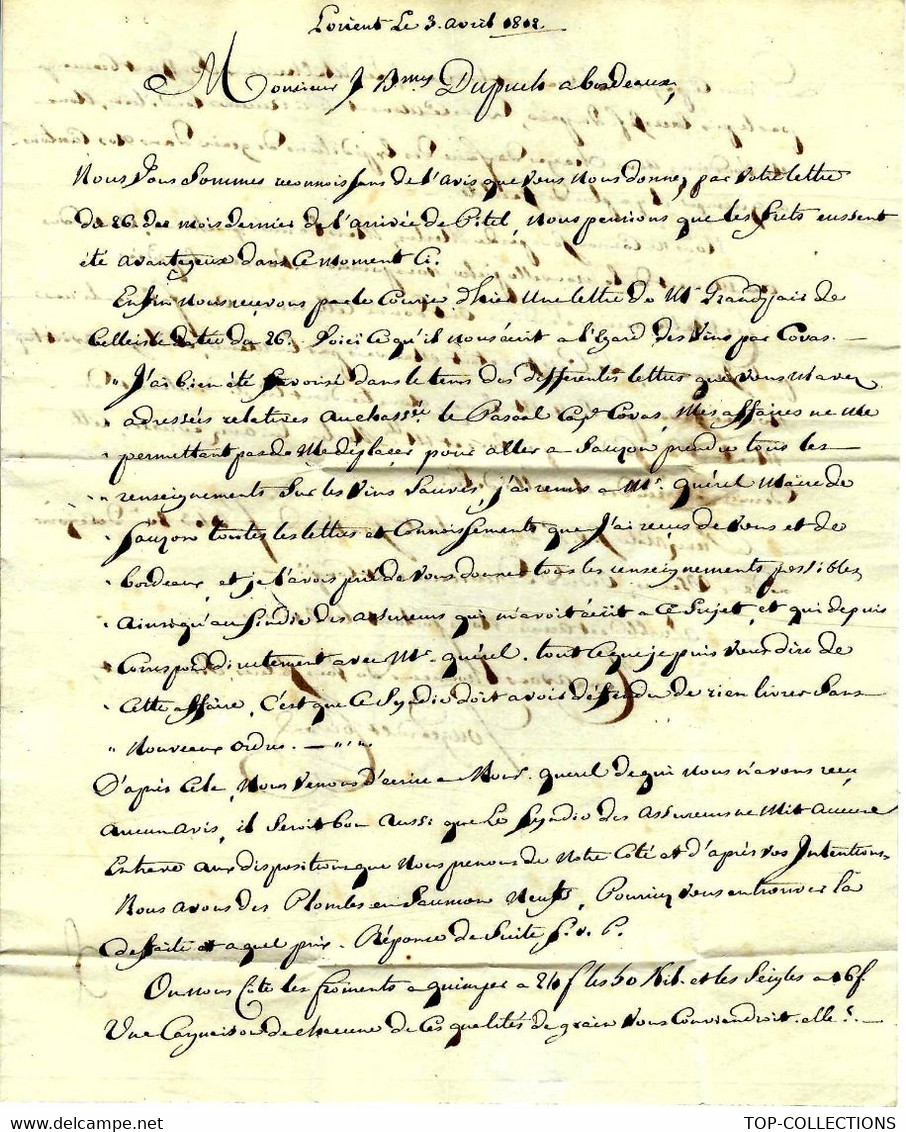 Lorient Le 3. avril 1818.
Monsieur J Bmy Dupuch a bordeaux,
Nous Vous Sommes reconnoissans de l'avis que vous nous donnez par votre lettre
du 26. du mois dernier de l'arrivée de Pitel, nous pensions que les frets eussent
été avantageux dans ce moment Ci.
Enfin nous recevons par le Courier d'hier une lettre de Mr Grandjair de
belleisle datée du 26. Voici Ce qu'il nous écrit a l'Egard des Vins par Covas. —
" J'ai bien été favorisé dans le tems des differentes lettres que vous m'avez
" adressées relatives au chassée le Pascal Cape Covas, Mes affaires ne me
" permettant pas de Me déplacer pour aller a Sauzon prendre tous les
" renseignements Sur les Vins Sauvés, j'ai remis a Mr. quérel Maire de
" Sauzon toutes les lettres et Connoissements que j'ai reçus de vous et de
" bordeaux, et je l'avois prié de vous donner tous les renseignements possibles,
" ainsi qu'au Sindic des assureurs qui m'avoit écrit a Ce Sujet, et qui depuis
" Correspond directement avec Mr. quérel. tout ce que je puis vous dire de
" Cette affaire, C'est que Ce Syndic doit avoir défendu de rien livrer Sans
" nouveaux ordres. — " " "
D'après Cela, Nous Venons d'écrire a Monsr. quérel de qui nous n'avons reçu
aucun avis, il Seroit bon aussi que Le Syndic des assureurs ne Mit aucune
Entrave aux dispositions que nous prenons de Notre Coté et d'après vos Intentions.
Nous avons des Plombs en Saumon Neufs, Pourriez vous en trouver la
deffaite et a quel prix. Réponse de Suite S. v. P.
On nous Cote les froments a quimper a 24 f les 50 Kil. et les Seigles a 16 f.
Une Cargaison de chacune de Ces qualités de grain vous Conviendroit-elle ? —
TOP-COLLECTIONS